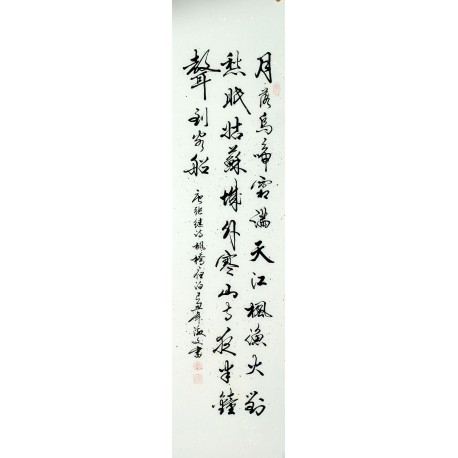 月落烏啼霜滿天江楓漁火對
愁眠姑蘇城外寒山寺夜半鐘
聲到客船
唐張繼詩楓橋夜泊書